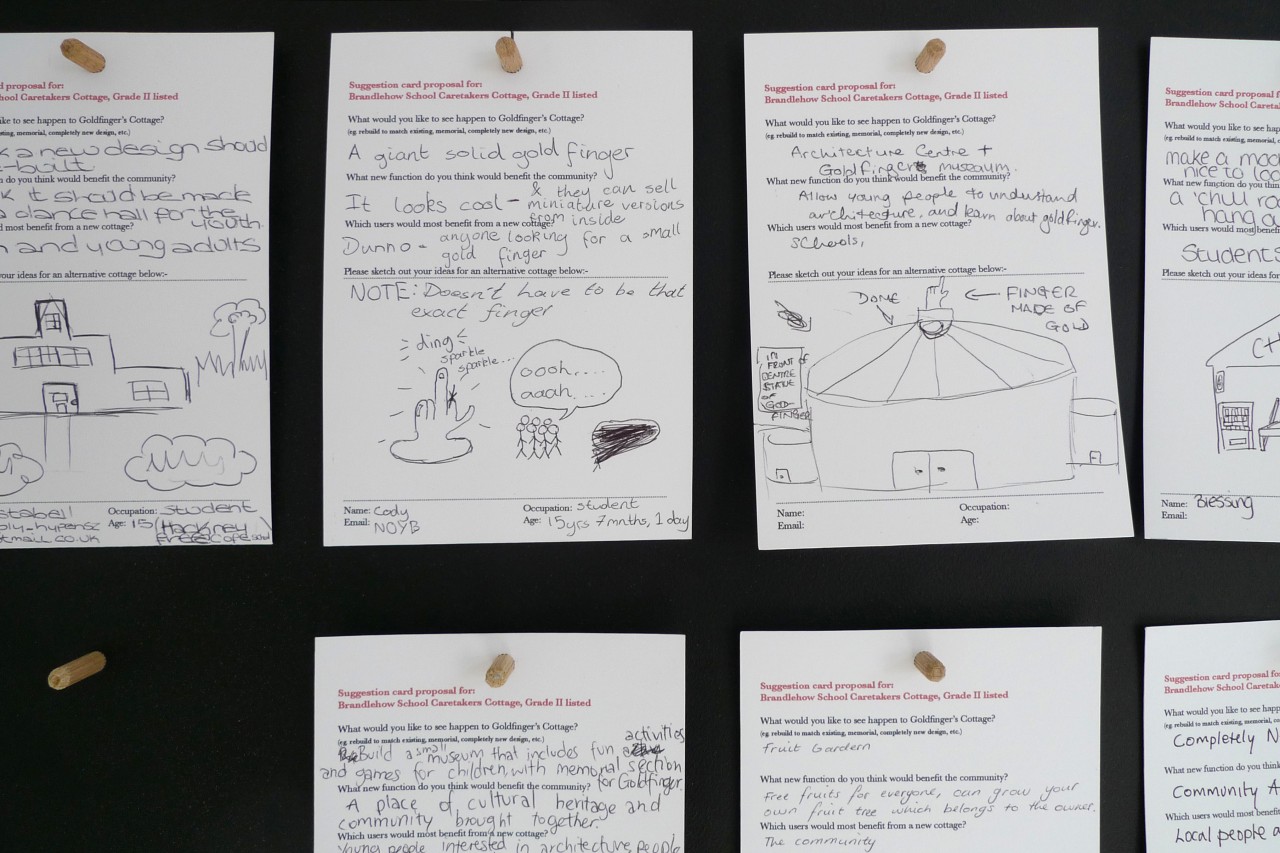 d proposal for:
hool Caretakers Cottage, Grade II listed
ke to see happen to Goldfinger's Cottage?
sting, memorial, completely new design, etc.)
a new design should
-built
n do you think would benefit the community?
k it should be made
a dance hall for the
youth.
d most benefit from a new cottage?
n and young adults
your ideas for an alternative cottage below:-
stabell
Occupation: student
Age: 15
Hackney
tmail.co.uk
Suggestion card proposal for:
Brandlehow School Caretakers Cottage, Grade II listed
What would you like to see happen to Goldfinger's Cottage?
(eg. rebuild to match existing, memorial, completely new design, etc.)
A giant solid gold finger
What new function do you think would benefit the community?
It looks cool - & they can sell
miniature versions
from inside
Which users would most benefit from a new cottage?
Dunno - anyone looking for a small
gold finger
Please sketch out your ideas for an alternative cottage below:-
NOTE: Doesn't have to be that
exact finger
ding
sparkle
sparkle...
oooh....
aaah....
Name: Cody
Email: NOYB
Occupation: student
Age: 15yrs 7mnths, 1 day
Suggestion card proposal for:
Brandlehow School Caretakers Cottage, Grade II listed
What would you like to see happen to Goldfinger's Cottage?
(eg. rebuild to match existing, memorial, completely new design, etc.)
Architecture Centre +
Goldfinger museaum.
What new function do you think would benefit the community?
Allow young people to understand
architecture, and learn about goldfinger.
Which users would most benefit from a new cottage?
Schools,
Please sketch out your ideas for an alternative cottage below:-
DOME
FINGER
MADE OF
GOLD
IN
FRONT of
CENTRE
STATUE
OF
GOD-
FINGER
Name:
Email:
Occupation:
Age:
Suggestion card proposal f
Brandlehow School Careta
What would you like to see happ
(eg. rebuild to match existing, memorial, c
make a moc
nice to loo
What new function do you thin
a 'chill ro
hang ou
Which users would most benefi
Students
Please sketch out your ideas for
Name: Blessing
Email:
Suggestion card proposal for:
Brandlehow School Caretakers Cottage, Grade II listed
What would you like to see happen to Goldfinger's Cottage?
(eg. rebuild to match existing, memorial, completely new design, etc.)
activities
Build a small museum that includes fun
and games for children, with memorial section
for Goldfinger.
What new function do you think would benefit the community?
A place of cultural heritage and
community brought together.
Which users would most benefit from a new cottage?
Young people interested in architecture, people
Suggestion card proposal for:
Brandlehow School Caretakers Cottage, Grade II listed
What would you like to see happen to Goldfinger's Cottage?
(eg. rebuild to match existing, memorial, completely new design, etc.)
fruit Gardern
What new function do you think would benefit the community?
Free fruits for everyone, can grow your
own fruit tree which belongs to the owner.
Which users would most benefit from a new cottage?
The community
Suggestion card proposal f
Brandlehow School Careta
What would you like to see happ
(eg. rebuild to match existing, memorial, c
Completely N
What new function do you thin
Community A
Which users would most benef
Local people a